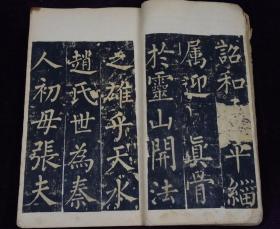 詔和平緇
属迎真骨
於靈山開法
之雄乎天水
趙氏世為秦
人初母張夫